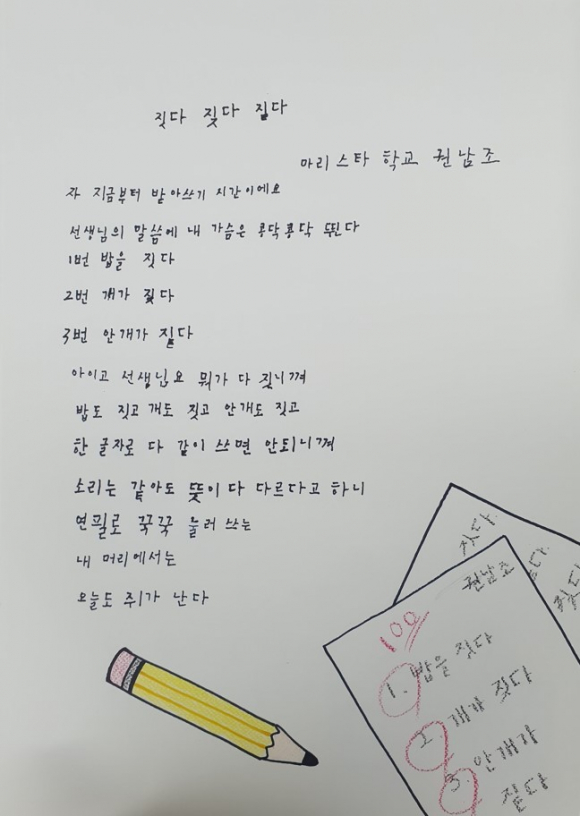 짓다 짖다 짙다
마리스타 학교 권남조
자 지금부터 받아쓰기 시간이에요
선생님의 말씀에 내 가슴은 콩닥콩닥 뛴다
1번 밥을 짓다
2번 개가 짖다
3번 안개가 짙다
아이고 선생님요 뭐가 다 짖니껴
밥도 짓고 개도 짖고 안개도 짖고
한 글자로 다 같이 쓰면 안되니껴
소리는 같아도 뜻이 다 다르다고 하니
연필로 꾹꾹 눌러 쓰는
내 머리에서는
오늘도 쥐가 난다
짓다
짖다
권남조
100
1. 밥을 짓다
2. 개가 짖다
3. 안개가
짙다